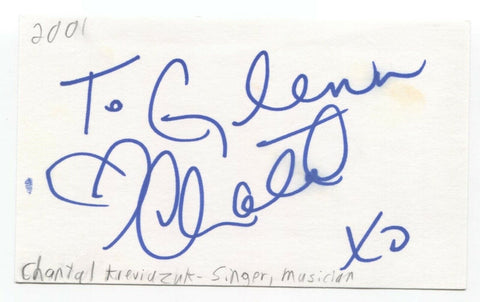 2001
To Glenn
♡ Chantal
XO
Chantal Kreviazuk - Singer, musician